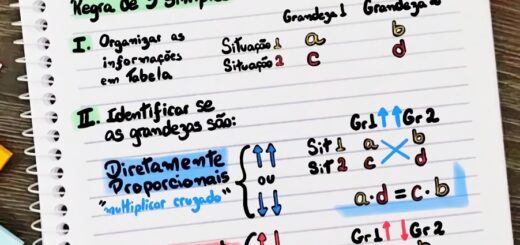 Regra de 3 Simples
Grandeza 1 Grandeza 2
I. Organizar as
informações
em Tabela
Situação 1 a b
Situação 2 c d
II. Identificar se
as grandezas são:
Diretamente
Proporcionais
"multiplicar cruzado"
↑↑
ou
↓↓
Gr 1 ↑↑ Gr 2
Sit 1 a b
Sit 2 c d
a·d = c·b
Gr 1 ↑↓ Gr 2
b